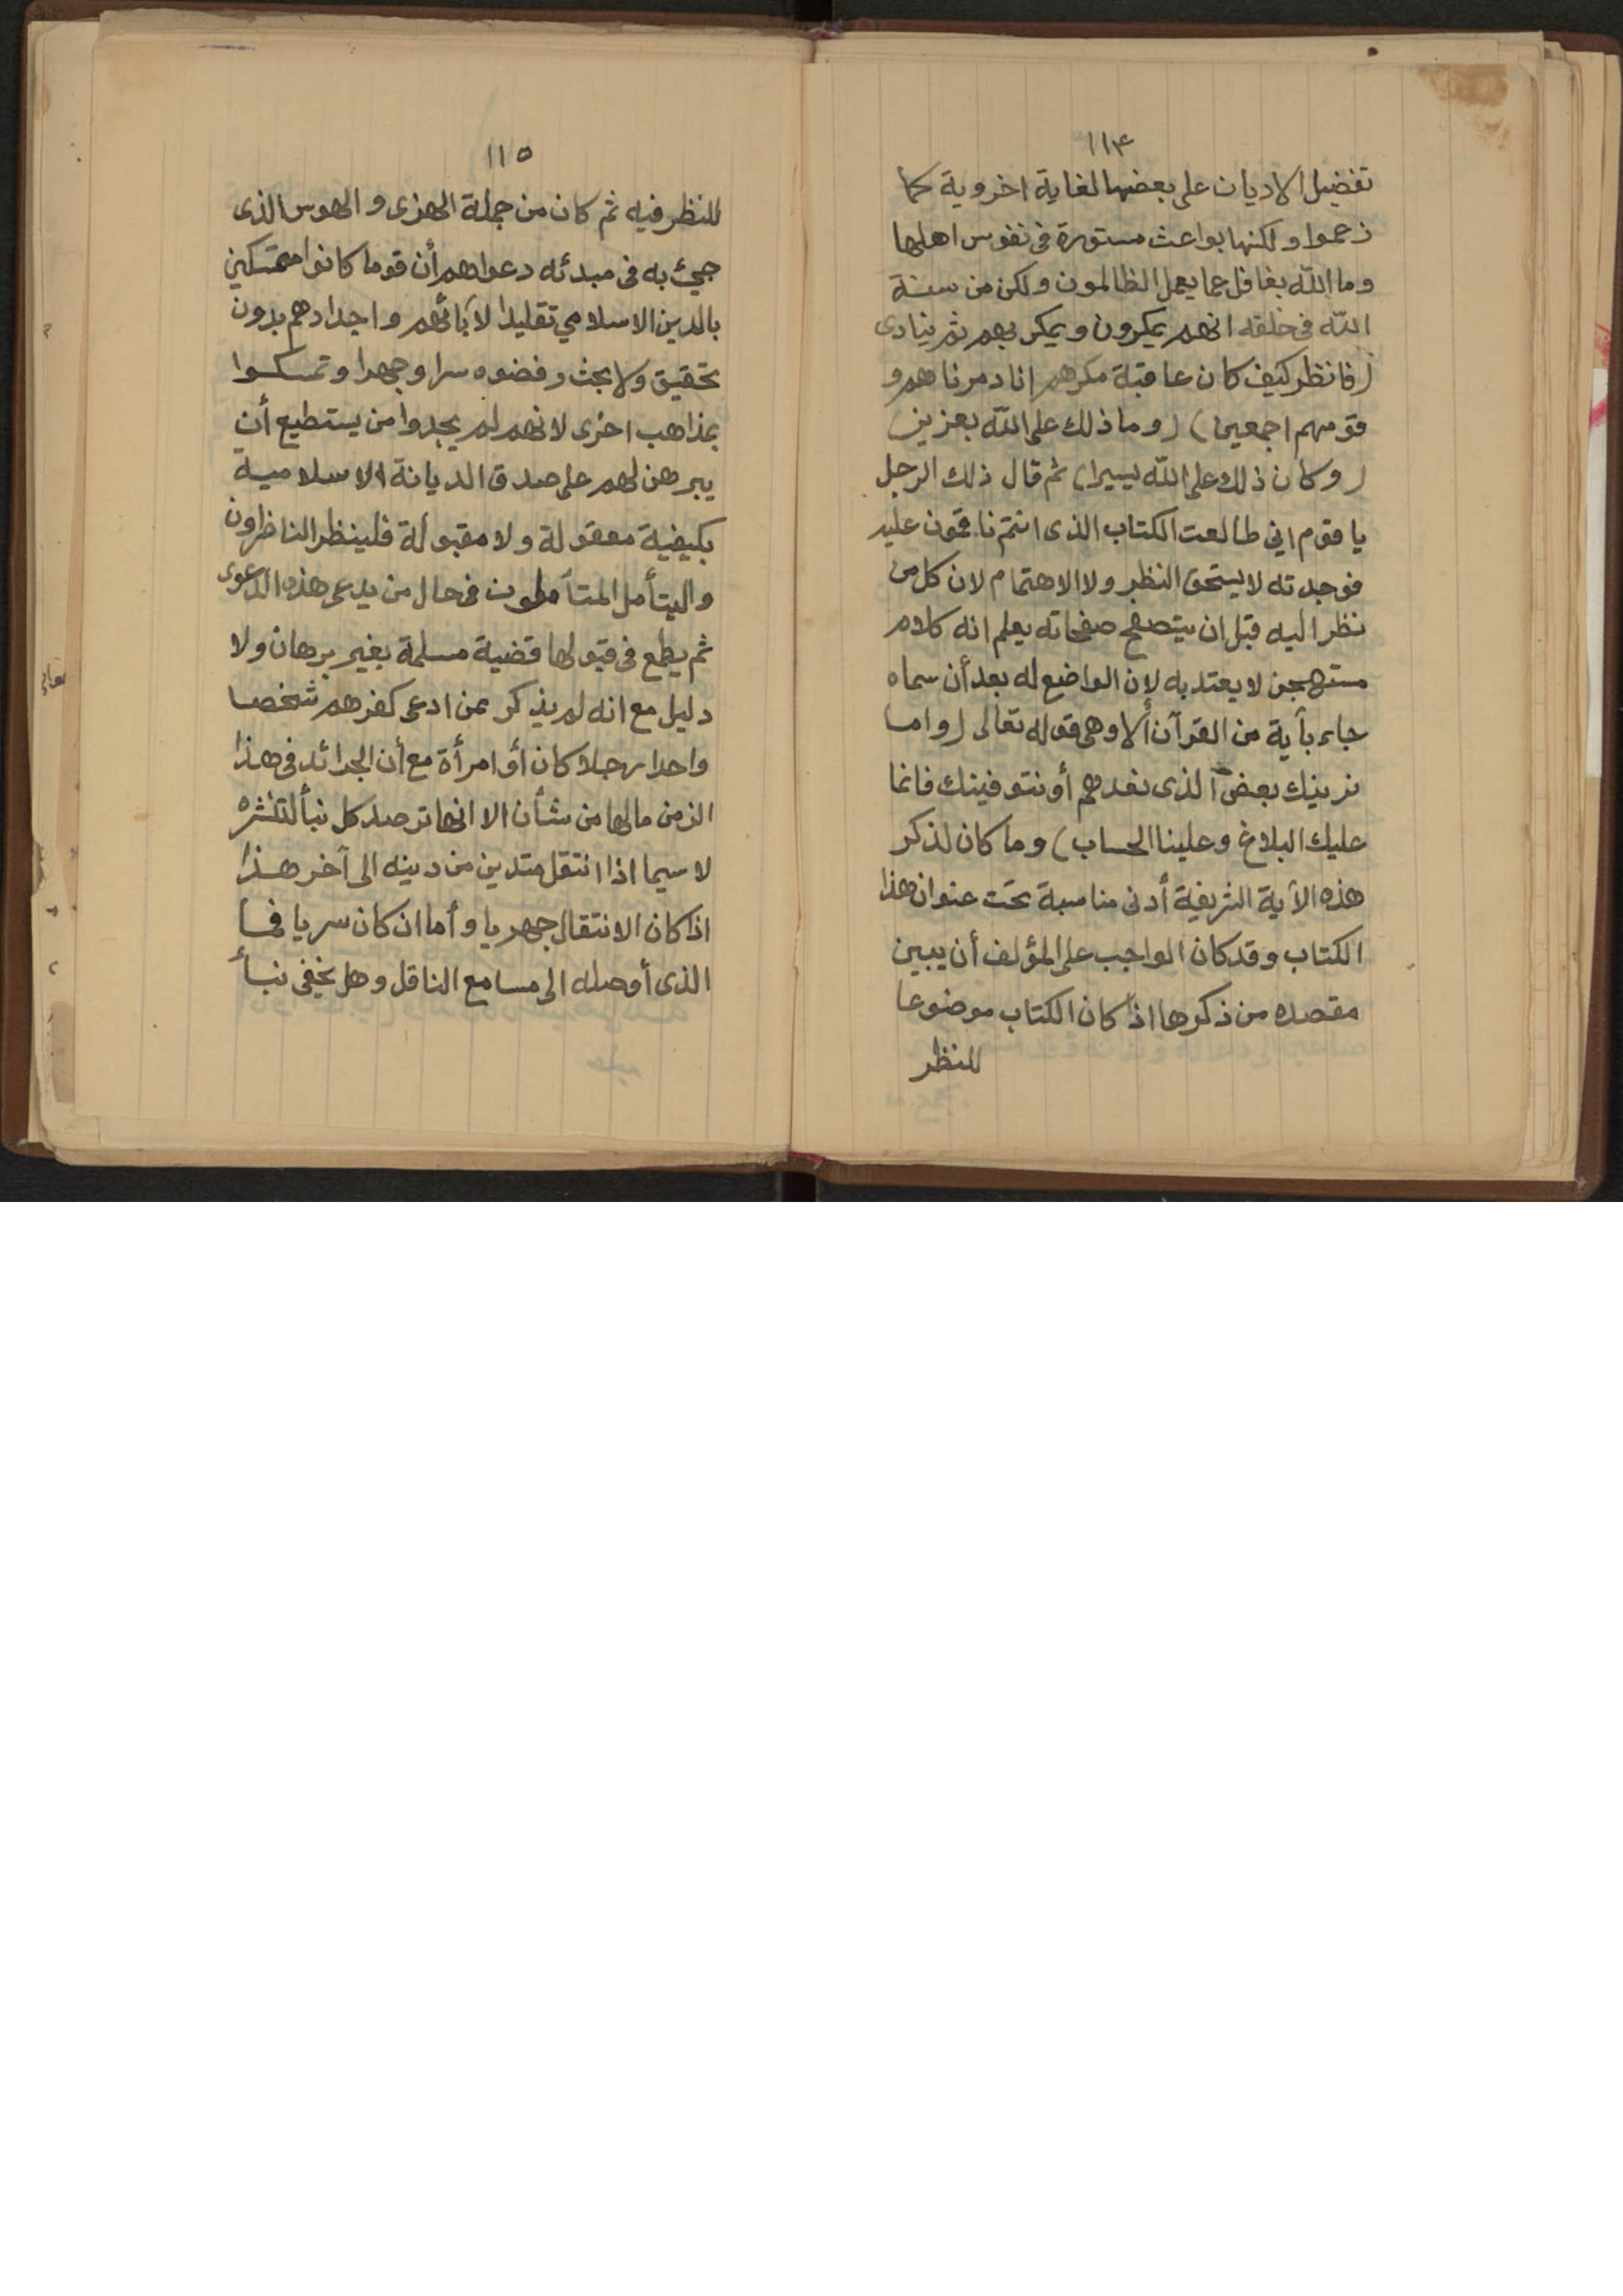 ١١٤
تفضيل الاديان على بعضها لغاية اخروية كما
زعموا ولكنها بواعث مستورة فى نفوس اهلها
وما الله بغافل عما يعمل الظالمون ولكن من سنة
الله فى خلقه انهم يمكرون ويمكر بهم ثم ينادى
(فانظر كيف كان عاقبة مكرهم انا دمرناهم و
قومهم اجمعين) (وما ذلك على الله بعزيز)
(وكان ذلك على الله يسيرا) ثم قال ذلك الرجل
يا قوم اني طالعت الكتاب الذى انتم ناقمون عليه
فوجدته لا يستحق النظر ولا الاهتمام لان كل من
نظر اليه قبل ان يتصفح صفحاته يعلم انه كلام
مستهجن لا يعتد به لان الواضع له بعد أن سماه
جاء بآية من القرآن ألا وهى قوله تعالى (واما
نرينك بعض الذى نعدهم أو نتوفينك فانما
عليك البلاغ وعلينا الحساب) وما كان لذكر
هذه الآية الشريفة أدنى مناسبة تحت عنوان هذا
الكتاب وقد كان الواجب على المؤلف أن يبين
مقصده من ذكرها اذا كان الكتاب موضوعا
للنظر
١١٥
للنظر فيه ثم كان من جملة الهزى والهوس الذى
جيئ به فى مبدئه دعواهم أن قوما كانوا متمسكين
بالدين الاسلامي تقليدا لآبائهم واجدادهم بدون
تحقيق ولا بحث رفضوه سرا وجهرا وتمسكوا
بمذاهب اخرى لانهم لم يجدوا من يستطيع أن
يبرهن لهم على صدق الديانة الاسلامية
بكيفية معقولة ولا مقبولة فلينظر الناظرون
واليتأمل المتأملون فى حال من يدعى هذه الدعوى
ثم يطمع فى قبولها قضية مسلمة بغير برهان ولا
دليل مع انه لم يذكر ممن ادعى كفرهم شخصا
واحدا رجلا كان أو امرأة مع أن الجرائد فى هذا
الزمن مالها من شأن الا انها ترصد كل نبأ لتنشره
لا سيما اذا انتقل متدين من دينه الى آخر هذا
اذا كان الانتقال جهريا وأما ان كان سريا فما
الذى أوصله الى مسامع الناقل وهل يخفى نبأ